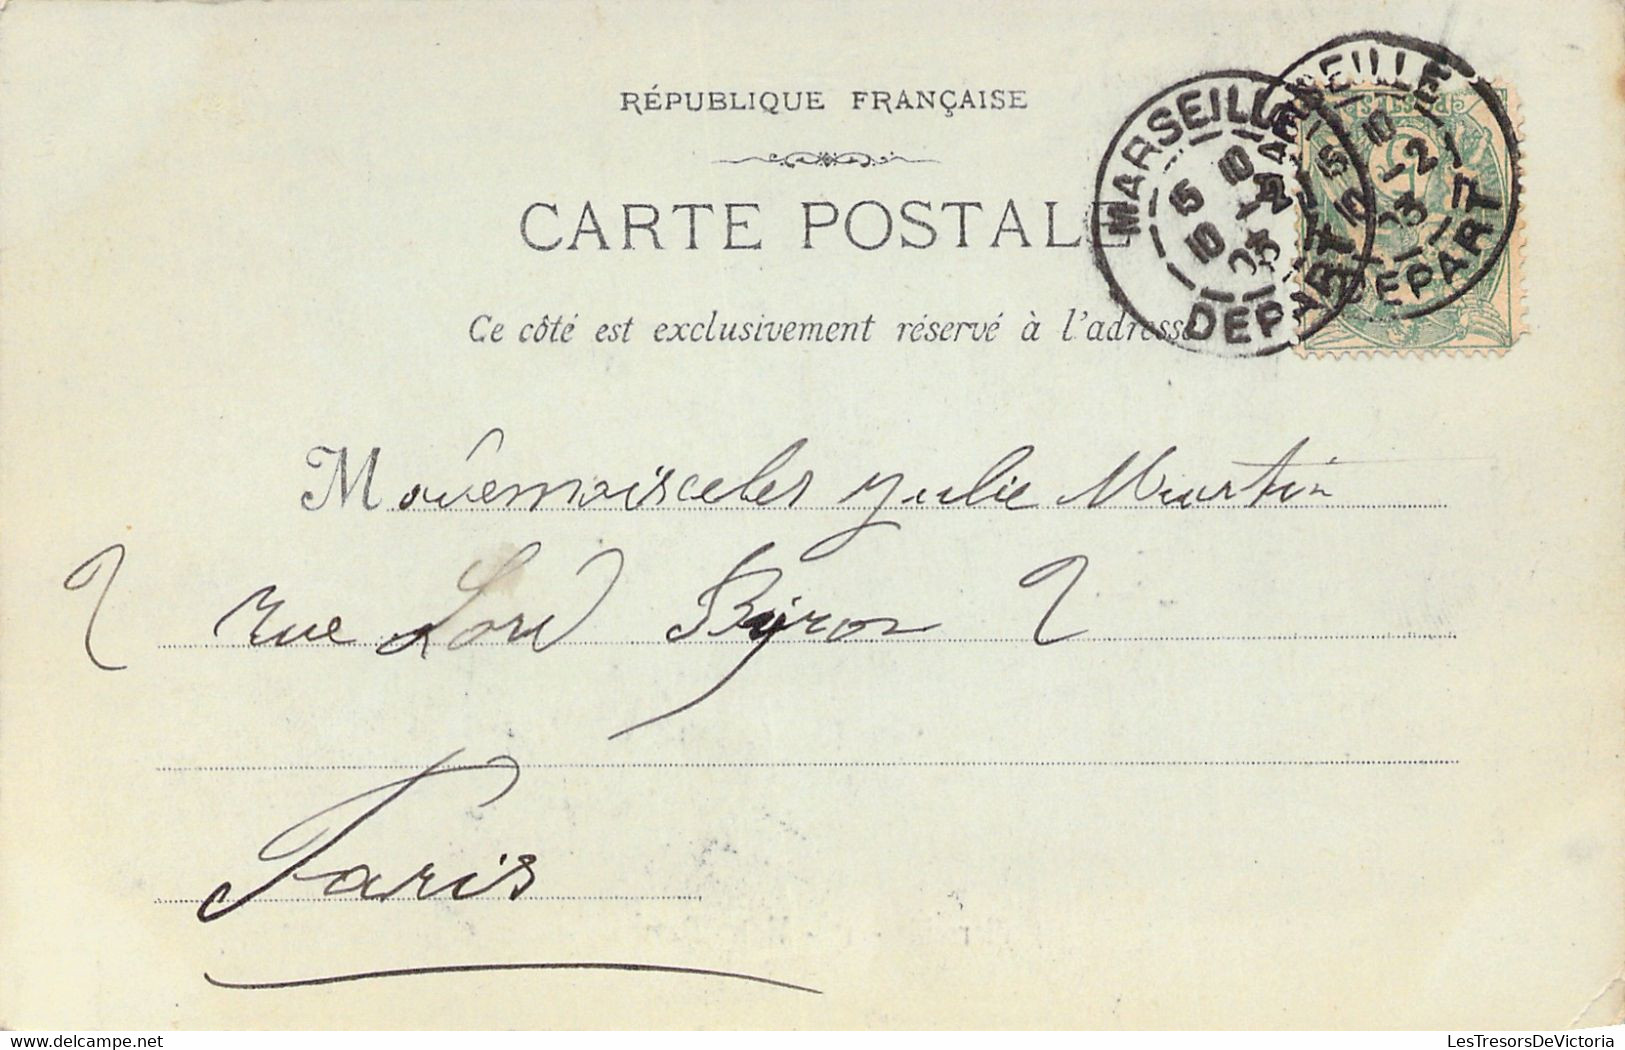 RÉPUBLIQUE FRANÇAISE
CARTE POSTALE
Ce côté est exclusivement réservé à l'adresse
MARSEILLE
15 10
10 -2
03
DEPART
MARSEILLE
15 10
10 -2
03
DEPART
POSTES
Mademoisceles Julie Martin
2 rue Lord Byron 2
Paris
www.delcampe.net
LesTresorsDeVictoria